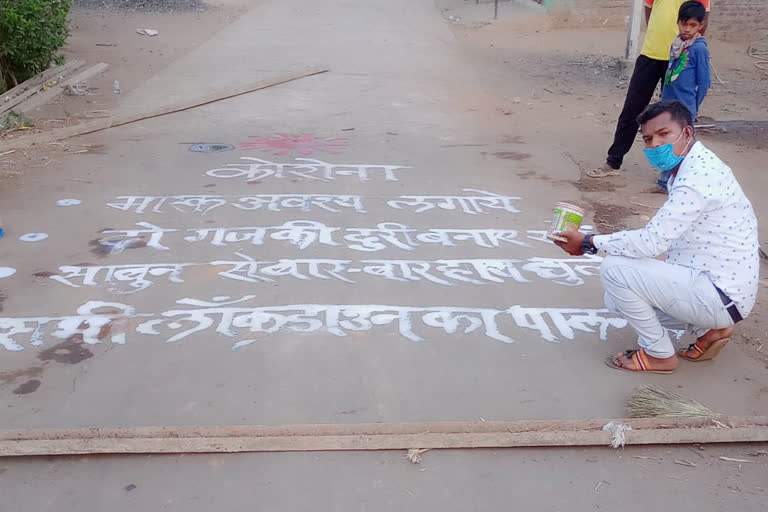 कोरोना
मास्क अवश्य लगाये
दो गज की दुरी बनाए
साबुन से बार-बार हाथ
सभी लॉकडाउन का पालन